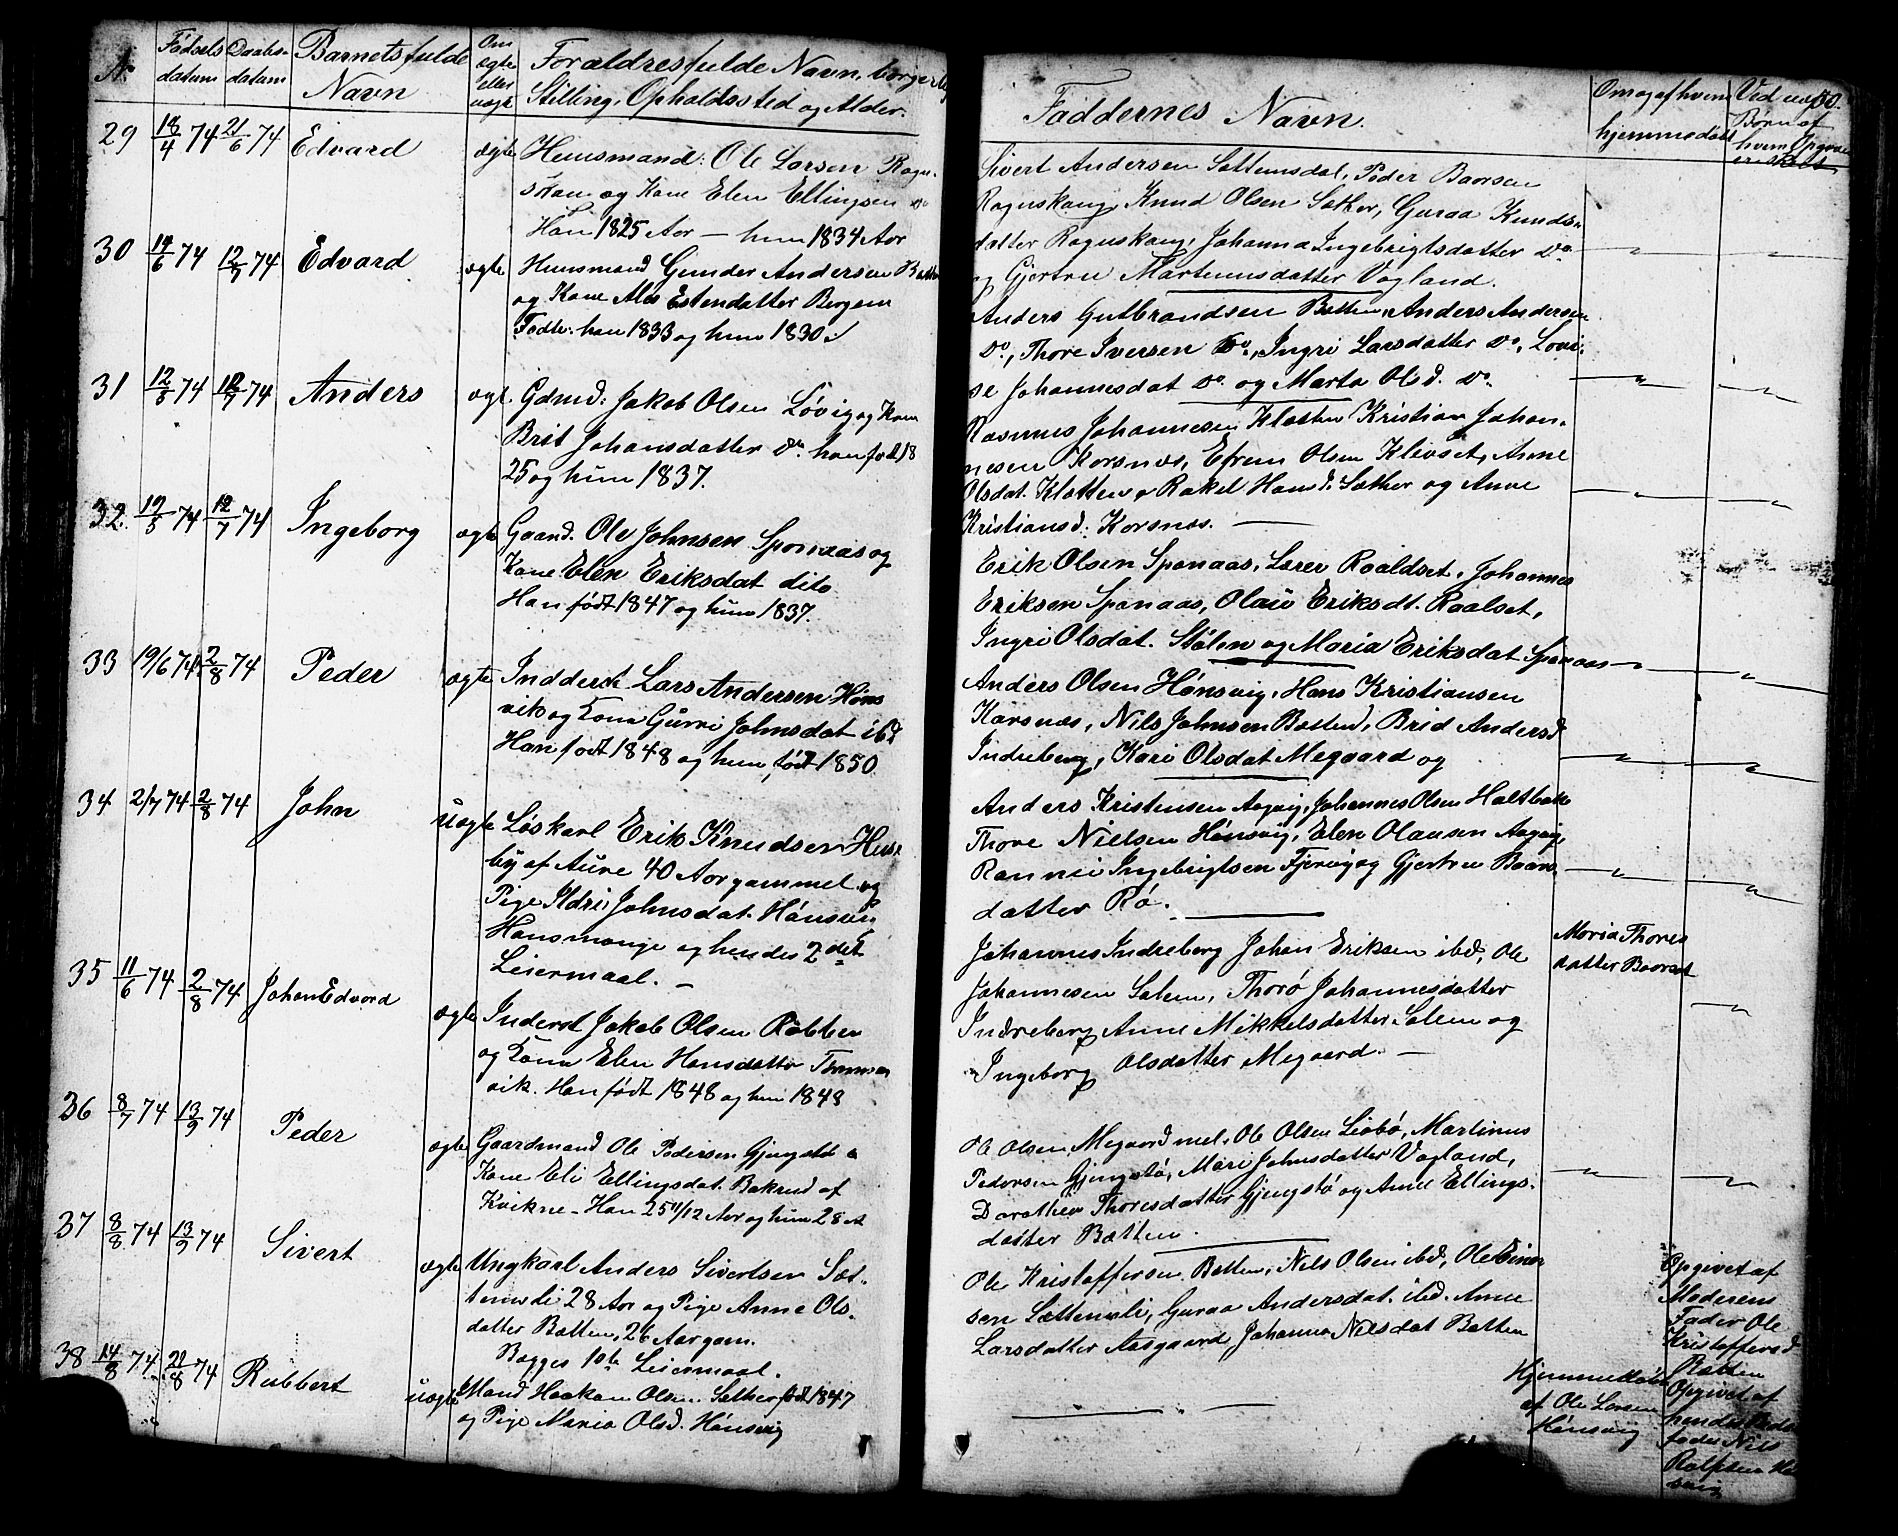 N. Fødsels datum Daabs- datum Barnets fulde Navn Om ægte eller uægte Forældres fulde Navn, borgerlig
Stilling, Opholdssted og Alder.
29 18/4 74 21/6 74 Edvard ægte Huusmand: Ole Larsen Ragn-
skau og Kone Elen Ellingsen do
Han 1825 Aar — hun 1834 Aar
30 14/6 74 12/7 74 Edvard ægte Huusmand Gunder Andersen Batten
og Kone Ales Estendatter Bergem
Fødte: han 1833 og hun 1830 ./.
31 12/5 74 12/7 74 Anders ægt. Gdmd: Jakob Olsen Løvig og Kone
Brit Johansdatter do han født 18
25 og hun 1837.
32. 17/5 74 12/7 74 Ingeborg ægte Gaard. Ole Johnsen Sponaas og
Kone Elen Eriksdat dito
Han født 1847 og hun 1837.
33 19/6 74 2/8 74 Peder ægte Indderst Lars Andersen Høns
vik og Kone Gurri Johnsdat ibd
Han født 1848 og hun født 1850
34 2/7 74 2/8 74 John uægte Løskarl Erik Knudsen Huse
by af Aure 40 Aar gammel og
Pige Ildri Johnsdat. Hónsvig
Hansmange og hendes 2det
Leiermaal. —
35 11/6 74 2/8 74 Johan Edvard ægte Inderst Jakob Olsen Rabben
og Kone Elen Hansdatter Thomas
vik. Han født 1848 og hun 1843
36 8/7 74 13/9 74 Peder ægte Gaardmand Ole Pedersen Gjengstø og
Kone Eli Ellingsdat. Bakrud af
Kvikne - Han 25 11/12 Aar og hun 28 A
37 8/8 74 13/9 74 Sivert ægte Ungkarl Anders Sivertsen Sæt-
temsli 28 Aar og Pige Anne Ols-
datter Batten, 26 Aar gam.
Begges 1ste Leiermaal.
38 14/8 74 21/8 74 Rabbert uægte Mand Haakon Olsen Sather født 1847
og Pige Maria Olsd. Hónsvig
Faddernes Navn. Om og af hvem hjemmedøbt Ved uægte Børn af hvem Opgave er skedt 50.
Sivert Andersen Settemsdal, Peder Baarsen
Raguskaug, Knud Olsen Sæther, Guraa Knuds-
datter Raguskaug, Johanna Ingebrigtsdatter do
og Gjertru Martinusdatter Vagland.
Anders Gutbrandsen Batten, Anders Andersen
do, Thore Iversen do, Ingri Larsdatter do, Lovi-
se Johannesdat do og Marta Olsd. do
Rasmus Johannesen Klatten Kristian Johan-
nesen Korsnæs, Efrem Olsen Klevset, Anne
Olsdat. Klatten, Rakel Hansd. Sather og Anne
Kristiansd: Korsnæs. —
Erik Olsen Sponaas, Lærer Raaldset, Johannes
Eriksen Sponaas, Olava Eriksdt. Raalset,
Ingri Olsdat. Stølen og Maria Eriksdat Sponaas
Anders Olsen Hónsvig, Hans Kristiansen
Karsnæs, Nils Johnsen Batten, Brid Andersd
Indreberg, Kari Olsdat Megaard og
Anders Kristensen Aagvig, Johannes Olsen Holtbak
Thore Nielsen Hónsvig, Elen Olausen Aagvig,
Rannei Ingebrigtsen Fjervig og Gjertru Baars
datter Rø.
Johannes Indreberg Johan Eriksen ibd, Ole Maria Thores
Johannesen Salem, Thorø Johannesdatter datter Baarset
Indreberg Anne Mikkelsdatter Salem og
Ingeborg Olsdatter Megaard. —
Ole Olsen Megaard mel, Ole Olsen Liabø, Martinus
Pedersen Gjengstø, Mari Johnsdatter Vagland,
Dorothea Thoresdatter Gjengstø og Anne Ellings-
datter Batten.
Ole Kristoffersen Batten, Nils Olsen ibd, Ole Einar
sen Sættemsli, Guraa Andersdat. ibd. Anne
Larsdatter Aasgaard, Johanna Nilsdat Batten
Opgivet af
Moderens
Fader Ole
Kristoffersd
Batten
Hjemmedøbt
af Ole Larsen
Hónsvig
Opgivet af
hendes
fader Nils